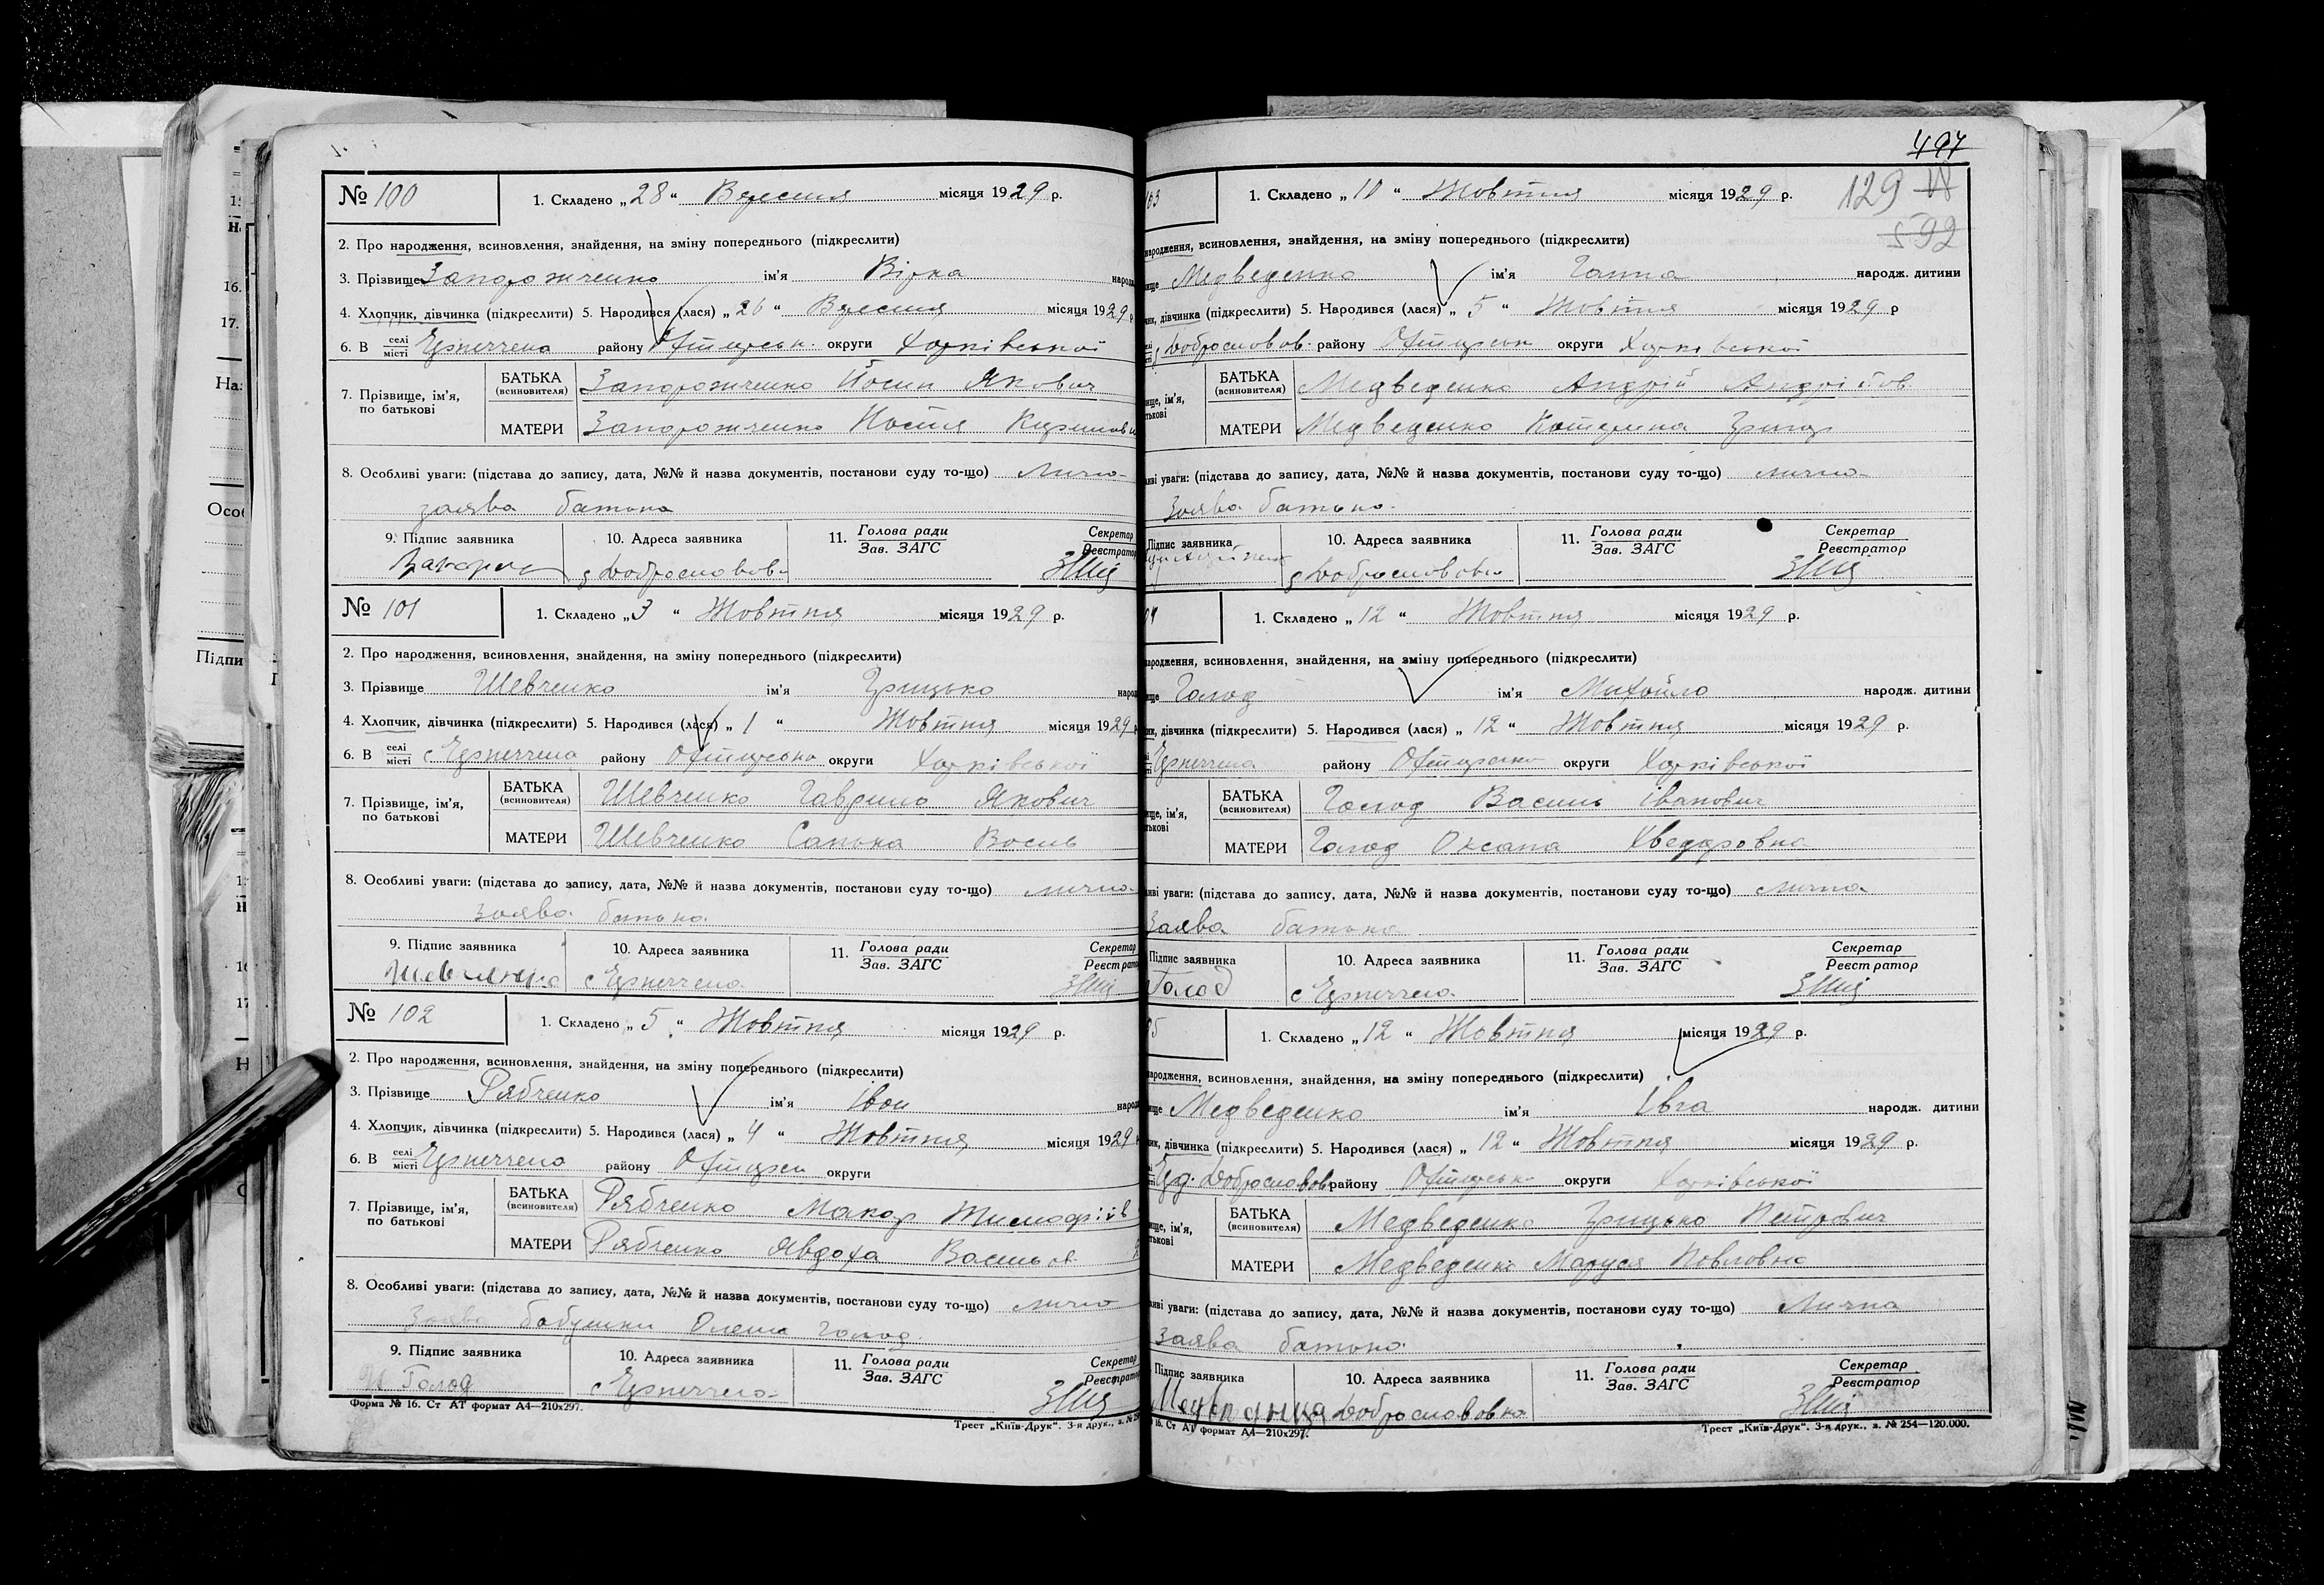 № 100
1. Складено „28“ Вересня місяця 1929 р.
2. Про народження, всиновлення, знайдення, на зміну попереднього (підкреслити)
3. Прізвище Запорожченко ім'я Вірка
4. Хлопчик, дівчинка (підкреслити) 5. Народився (лася) „26“ Вересня місяця 1929 р
6. В селі місті району Охтирськ. округи Харківської
7. Прізвище, ім'я, по батькові
БАТЬКА (всиновителя) Запорожченко Йосип Якович
МАТЕРИ Запорожченко Настя
8. Особливі уваги: (підстава до запису, дата, №№ й назва документів, постанови суду то-що) Лична
заява батька
9. Підпис заявника 10. Адреса заявника 11. Голова ради Зав. ЗАГС Секретар Реєстратор
Добрословов
№ 101
1. Складено „3“ Жовтня місяця 1929 р.
2. Про народження, всиновлення, знайдення, на зміну попереднього (підкреслити)
3. Прізвище Шевченко ім'я Грицько
4. Хлопчик, дівчинка (підкреслити) 5. Народився (лася) „1“ Жовтня місяця 1929 р
6. В селі місті с району Охтирська округи Харківської
7. Прізвище, ім'я, по батькові
БАТЬКА (всиновителя) Шевченко Гаврило Якович
МАТЕРИ Шевченко Санька Василь
8. Особливі уваги: (підстава до запису, дата, №№ й назва документів, постанови суду то-що) лична
заява батька
9. Підпис заявника 10. Адреса заявника 11. Голова ради Зав. ЗАГС Секретар Реєстратор
№ 102
1. Складено „5“ Жовтня місяця 1929 р.
2. Про народження, всиновлення, знайдення, на зміну попереднього (підкреслити)
3. Прізвище Рябченко ім'я Іван
4. Хлопчик, дівчинка (підкреслити) 5. Народився (лася) „4“ Жовтня місяця 1929
6. В селі місті району Охтирсь округи
7. Прізвище, ім'я, по батькові
БАТЬКА (всиновителя) Рябченко Макар Тимофіїв
МАТЕРИ Рябченко Явдоха Васильов
8. Особливі уваги: (підстава до запису, дата, №№ й назва документів, постанови суду то-що) лична
Заява бабушки Олена Голод
9. Підпис заявника 10. Адреса заявника 11. Голова ради Зав. ЗАГС Секретар Реєстратор
Голод
Форма № 16. Ст АТ формат А4—210х297.
Трест „Київ-Друк“. 3-я друк., з. №
497
129
592
103
1. Складено „10“ Жовтня місяця 1929 р.
народження, всиновлення, знайдення, на зміну попереднього (підкреслити)
Медведенко ім'я Ганна народж. дитини
дівчинка (підкреслити) 5. Народився (лася) „5“ Жовтня місяця 1929 р
Добрословов. району Охтирськ округи Харківської
БАТЬКА (всиновителя) Медведенко Андрій Андріїов
МАТЕРИ Медведенко Катерина Григор
уваги: (підстава до запису, дата, №№ й назва документів, постанови суду то-що) лична
Заява батька
Підпис заявника 10. Адреса заявника 11. Голова ради Зав. ЗАГС Секретар Реєстратор
Доброслововка
04
1. Складено „12“ Жовтня місяця 1929 р.
народження, всиновлення, знайдення, на зміну попереднього (підкреслити)
Голод ім'я Михайло народж. дитини
дівчинка (підкреслити) 5. Народився (лася) „12“ Жовтня місяця 1929 р.
району Охтирська округи Харківської
БАТЬКА (всиновителя) Голод Василь Іванович
МАТЕРИ Голод Оксана Хведоровна
уваги: (підстава до запису, дата, №№ й назва документів, постанови суду то-що) лична
Заява батька
Підпис заявника 10. Адреса заявника 11. Голова ради Зав. ЗАГС Секретар Реєстратор
Голод
05
1. Складено „12“ Жовтня місяця 1929 р.
народження, всиновлення, знайдення, на зміну попереднього (підкреслити)
Медведенко ім'я Івга народж. дитини
дівчинка (підкреслити) 5. Народився (лася) „12“ Жовтня місяця 1929 р.
Добрословов району Охтирськ округи Харківської
БАТЬКА (всиновителя) Медведенко Грицько Петрович
МАТЕРИ Медведенко Маруся Павловна
уваги: (підстава до запису, дата, №№ й назва документів, постанови суду то-що) Лична
Заява батька
Підпис заявника 10. Адреса заявника 11. Голова ради Зав. ЗАГС Секретар Реєстратор
Доброслововка
16. Ст АТ формат А4—210х297.
Трест „Київ-Друк“. 3-я друк., з. № 254—120.000.